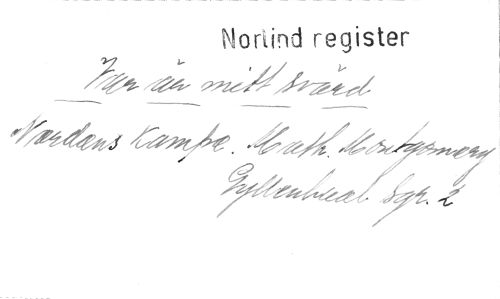 Norlind register
Var är mitt svärd
Nordens Kämpe. Math. Montgomery
Gyllenhaal Sgr. 2